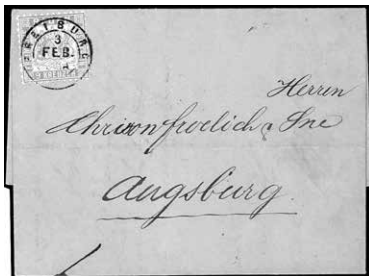 FREIBURG
3
FEB.
Herren
Chrison froelich & Sne
Augsburg